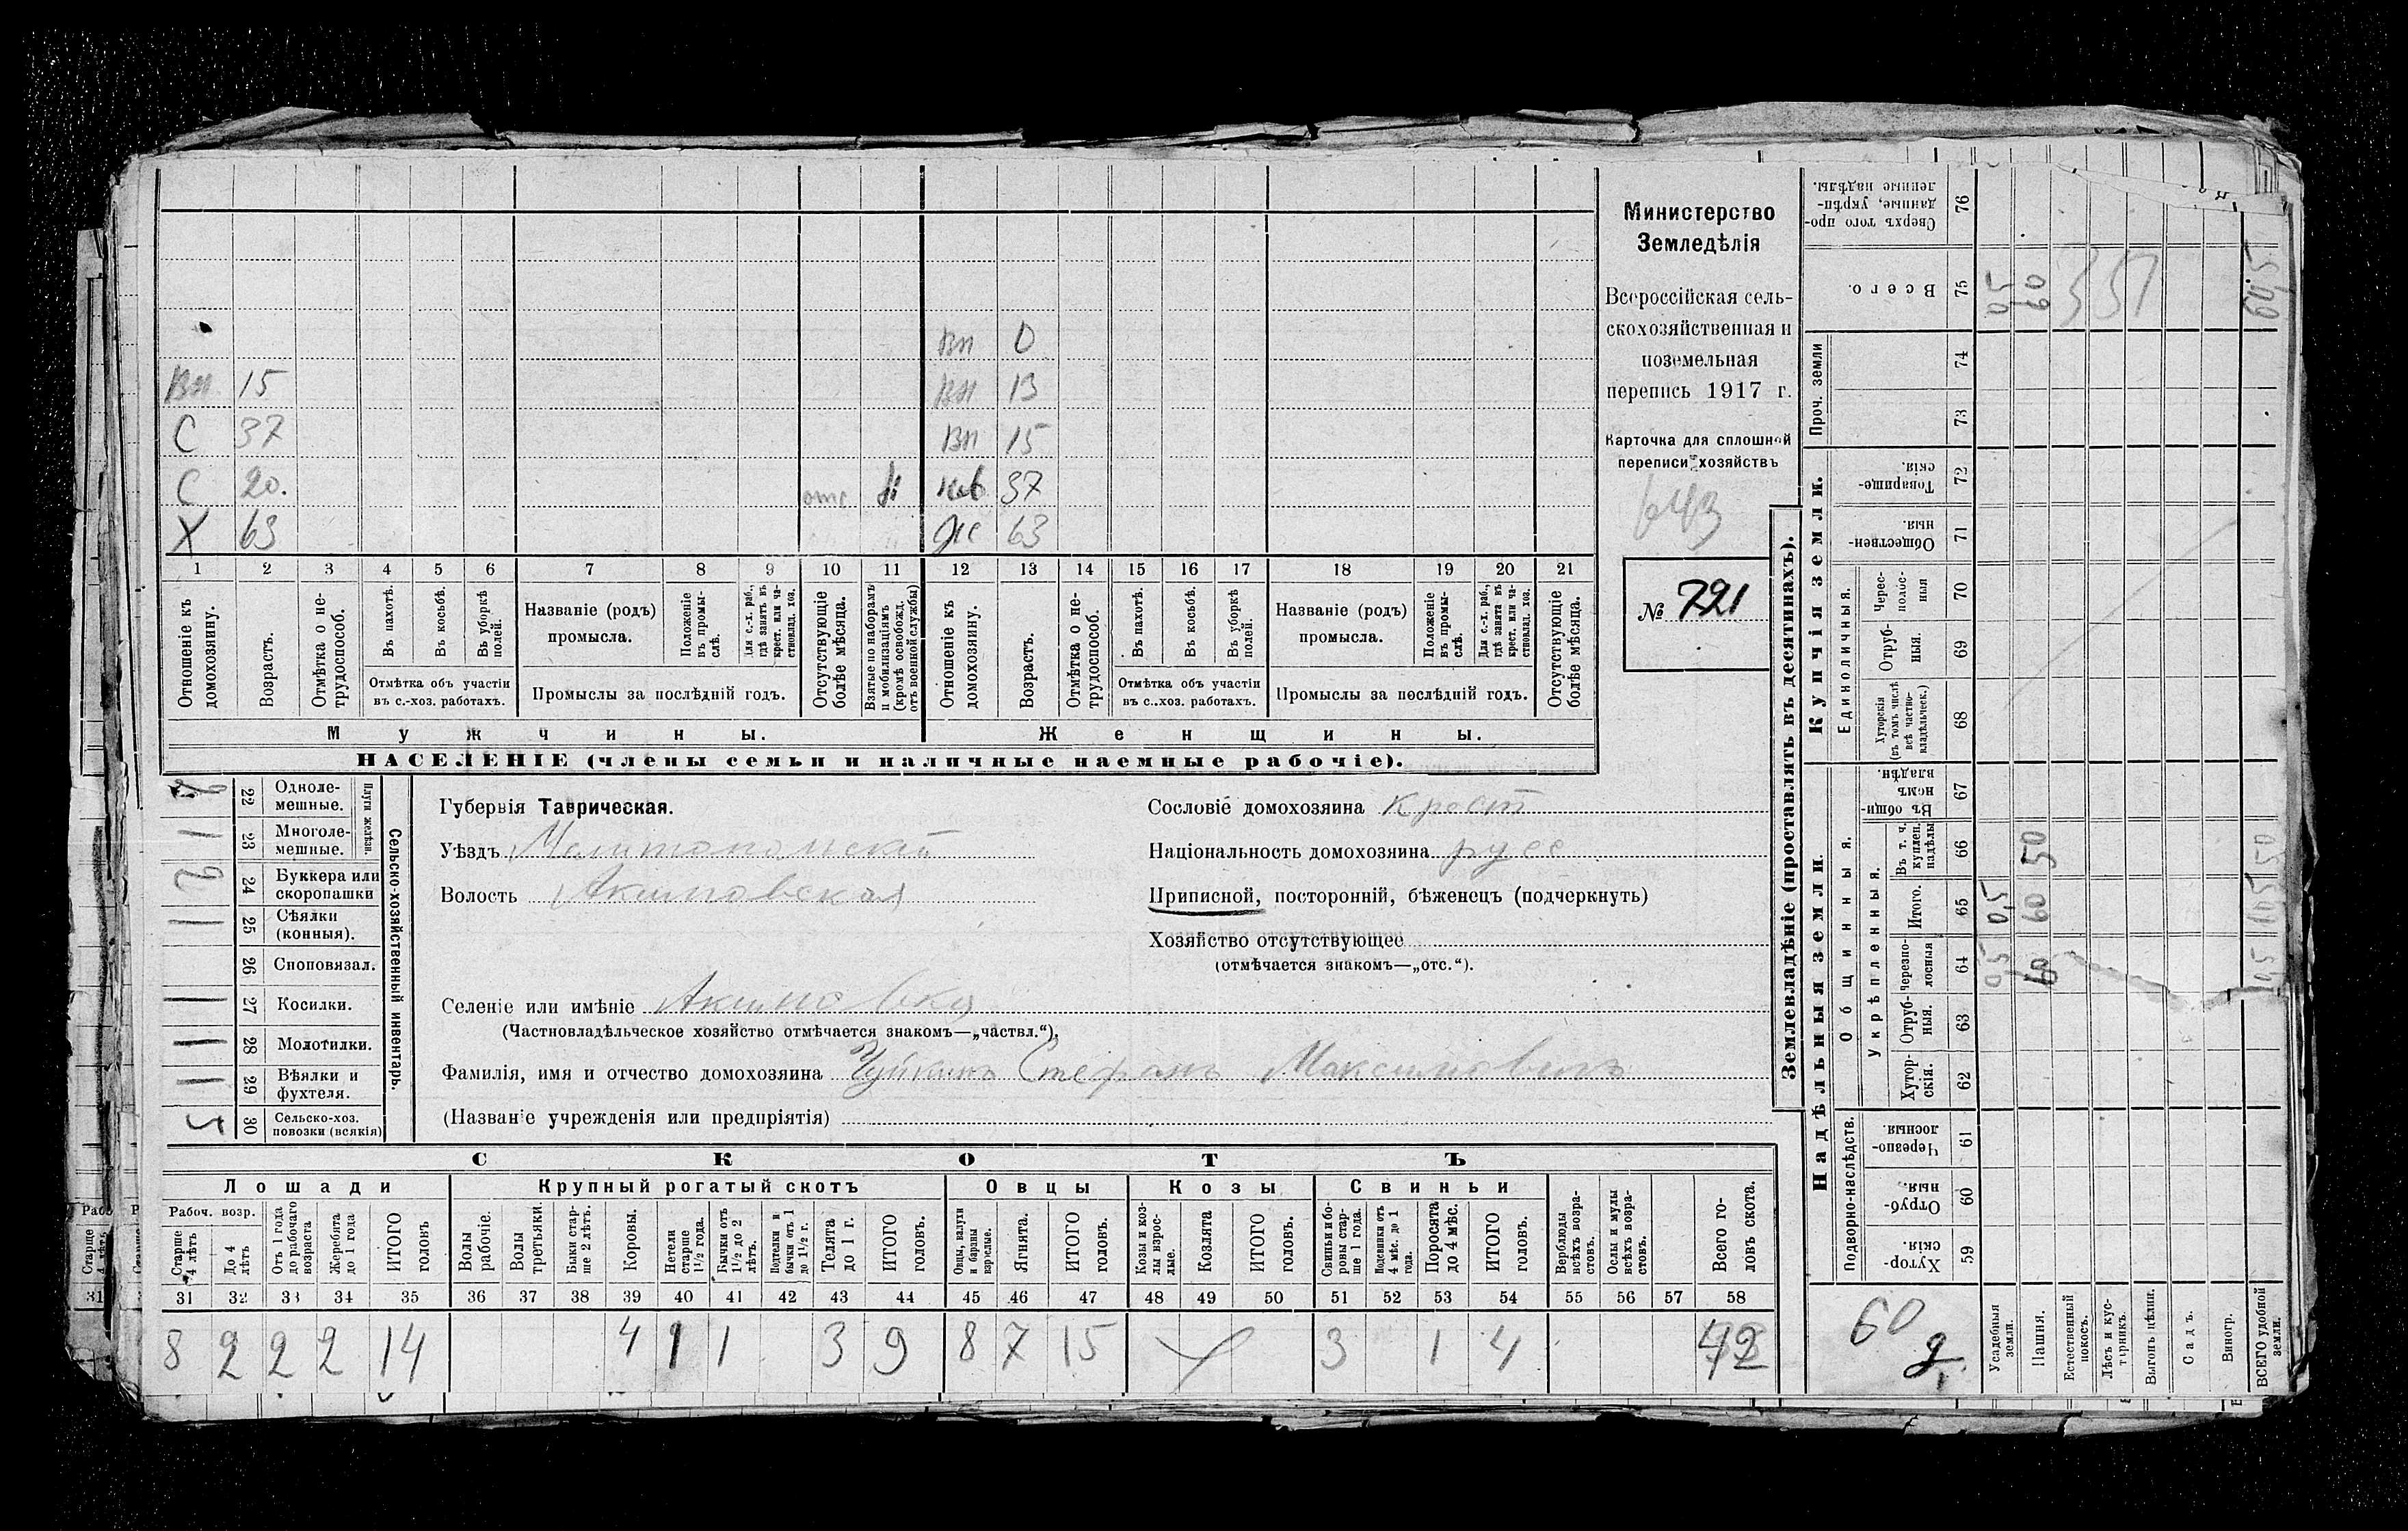 Вн 0
Вн 15 Вн 13
С 37 Вн 15
С 20. отс 37
Х 63 Же 63
1 2 3 4 5 6 7 8 9 10 11 12 13 14 15 16 17 18 19 20 21
Отношеніе къ домохозяину.
Возрастъ.
Отмѣтка о нетрудоспособ.
Въ пахотѣ.
Въ косьбѣ.
Въ уборкѣ полей.
Отмѣтка объ участіи
въ с.-хоз. работахъ.
Названіе (родъ)
промысла.
Положеніе въ промыслѣ.
Для с.-х. раб., гдѣ занятъ въ крест. или частновлад. хоз.
Промыслы за послѣдній годъ.
Отсутствующіе болѣе мѣсяца.
Взятые по наборамъ и мобилизаціямъ (кромѣ освобожд. отъ военной службы)
Отношеніе къ домохозяину.
Возрастъ.
Отмѣтка о нетрудоспособ.
Въ пахотѣ.
Въ косьбѣ.
Въ уборкѣ полей.
Отмѣтка объ участіи
въ с..хоз. работахъ.
Названіе (родъ)
промысла.
Положеніе въ промыслѣ.
Для с.-х. раб., гдѣ занята въ крест. или частновлад. хоз.
Промыслы за послѣдній годъ.
Отсутствующіе болѣе мѣсяца.
Мужчины. Женщины.
НАСЕЛЕНІЕ (члены семьи и наличные наемные рабочіе).
Министерство
Земледѣлія
Всероссійская сель-
скохозяйственная и
поземельная
перепись 1917 г.
Карточка для сплошной
переписи хозяйствъ
643
№ 721
Сельско-хозяйственный инвентарь.
Плуги желѣзн.
22 Одноле-
мешные.
1 23 Многоле-
мешные.
2 24 Буккера или
скоропашки
1 25 Сѣялки
(конныя).
26 Сноповязал.
1 27 Косилки.
1 28 Молотилки.
1 29 Вѣялки и
фухтеля.
5 30 Сельско-хоз.
повозки (всякія)
Губернія Таврическая.
Уѣздъ Мелитопольскій
Волость Акимовская
Селеніе или имѣніе Акимовка
(Частновладѣльческое хозяйство отмѣчается знакомъ—„частвл.“),
Фамилія, имя и отчество домохозяина Чуйкинъ Стефанъ Максимовичъ
(Названіе учрежденія или предпріятія)
Сословіе домохозяина Крест
Національность домохозяина русс
Приписной, посторонній, бѣженецъ (подчеркнуть)
Хозяйство отсутствующее
(отмѣчается знакомъ—„отс.“).
СКОТЪ
Лошади Крупный рогатый скотъ Овцы Козы Свиньи
Рабоч. возр.
Старше 4 лѣтъ
До 4 лѣтъ
Отъ 1 года до рабочаго возраста
Жеребята до 1 года
ИТОГО головъ
Волы рабочіе.
Волы третьяки.
Быки старше 2 лѣтъ.
Коровы.
Нетели старше 1½ года.
Бычки отъ 1½ до 2 лѣтъ.
Подтелки и бычки отъ 1 до 1½ г.
Телята до 1 г.
ИТОГО головъ.
Овцы, валухи и бараны взрослые.
Ягнята.
ИТОГО головъ.
Козы и козлы взрослые.
Козлята
ИТОГО головъ.
Свиньи и боровы старше 1 года.
Подсвинки отъ 4 мѣс. до 1 года.
Поросята до 4 мѣс.
ИТОГО головъ.
Верблюды всѣхъ возрастовъ.
Ослы и мулы всѣхъ возрастовъ.
Всего головъ скота.
31 32 33 34 35 36 37 38 39 40 41 42 43 44 45 46 47 48 49 50 51 52 53 54 55 56 57 58
8 2 2 2 14 4 1 1 3 9 8 7 15 3 1 4 42
Землевладѣніе (проставлять въ десятинахъ).
Купчія земли.
Надѣльныя земли.
Сверхъ того проданные, укрѣпленные надѣлы. 76
Всего. 75 05 60 60,5
Проч. земли 74 73
Товарищескія. 72
Общественныя. 71
Единоличныя.
Чересполосныя 70
Отрубныя. 69
Хуторскія (въ томъ числѣ всѣ частновладѣльческ.) 68
Общинныя.
Въ общинномъ владѣн. 67
Укрѣпленныя.
Въ т. ч. куплен. надѣлы 66 50 50
Итого. 65 0,5 60
Черезполосныя 64 05 60
Отрубныя. 63
Хуторскія. 62
Подворно-наслѣдств.
Черезполосныя 61
Отрубныя. 60
Хуторскія 59
60 д.
Усадебныя земли.
Пашня.
Естественный покосъ.
Лѣсъ и кустарникъ.
Выгонъ цѣлин.
Садъ.
Виногр.
ВСЕГО удобной земли.